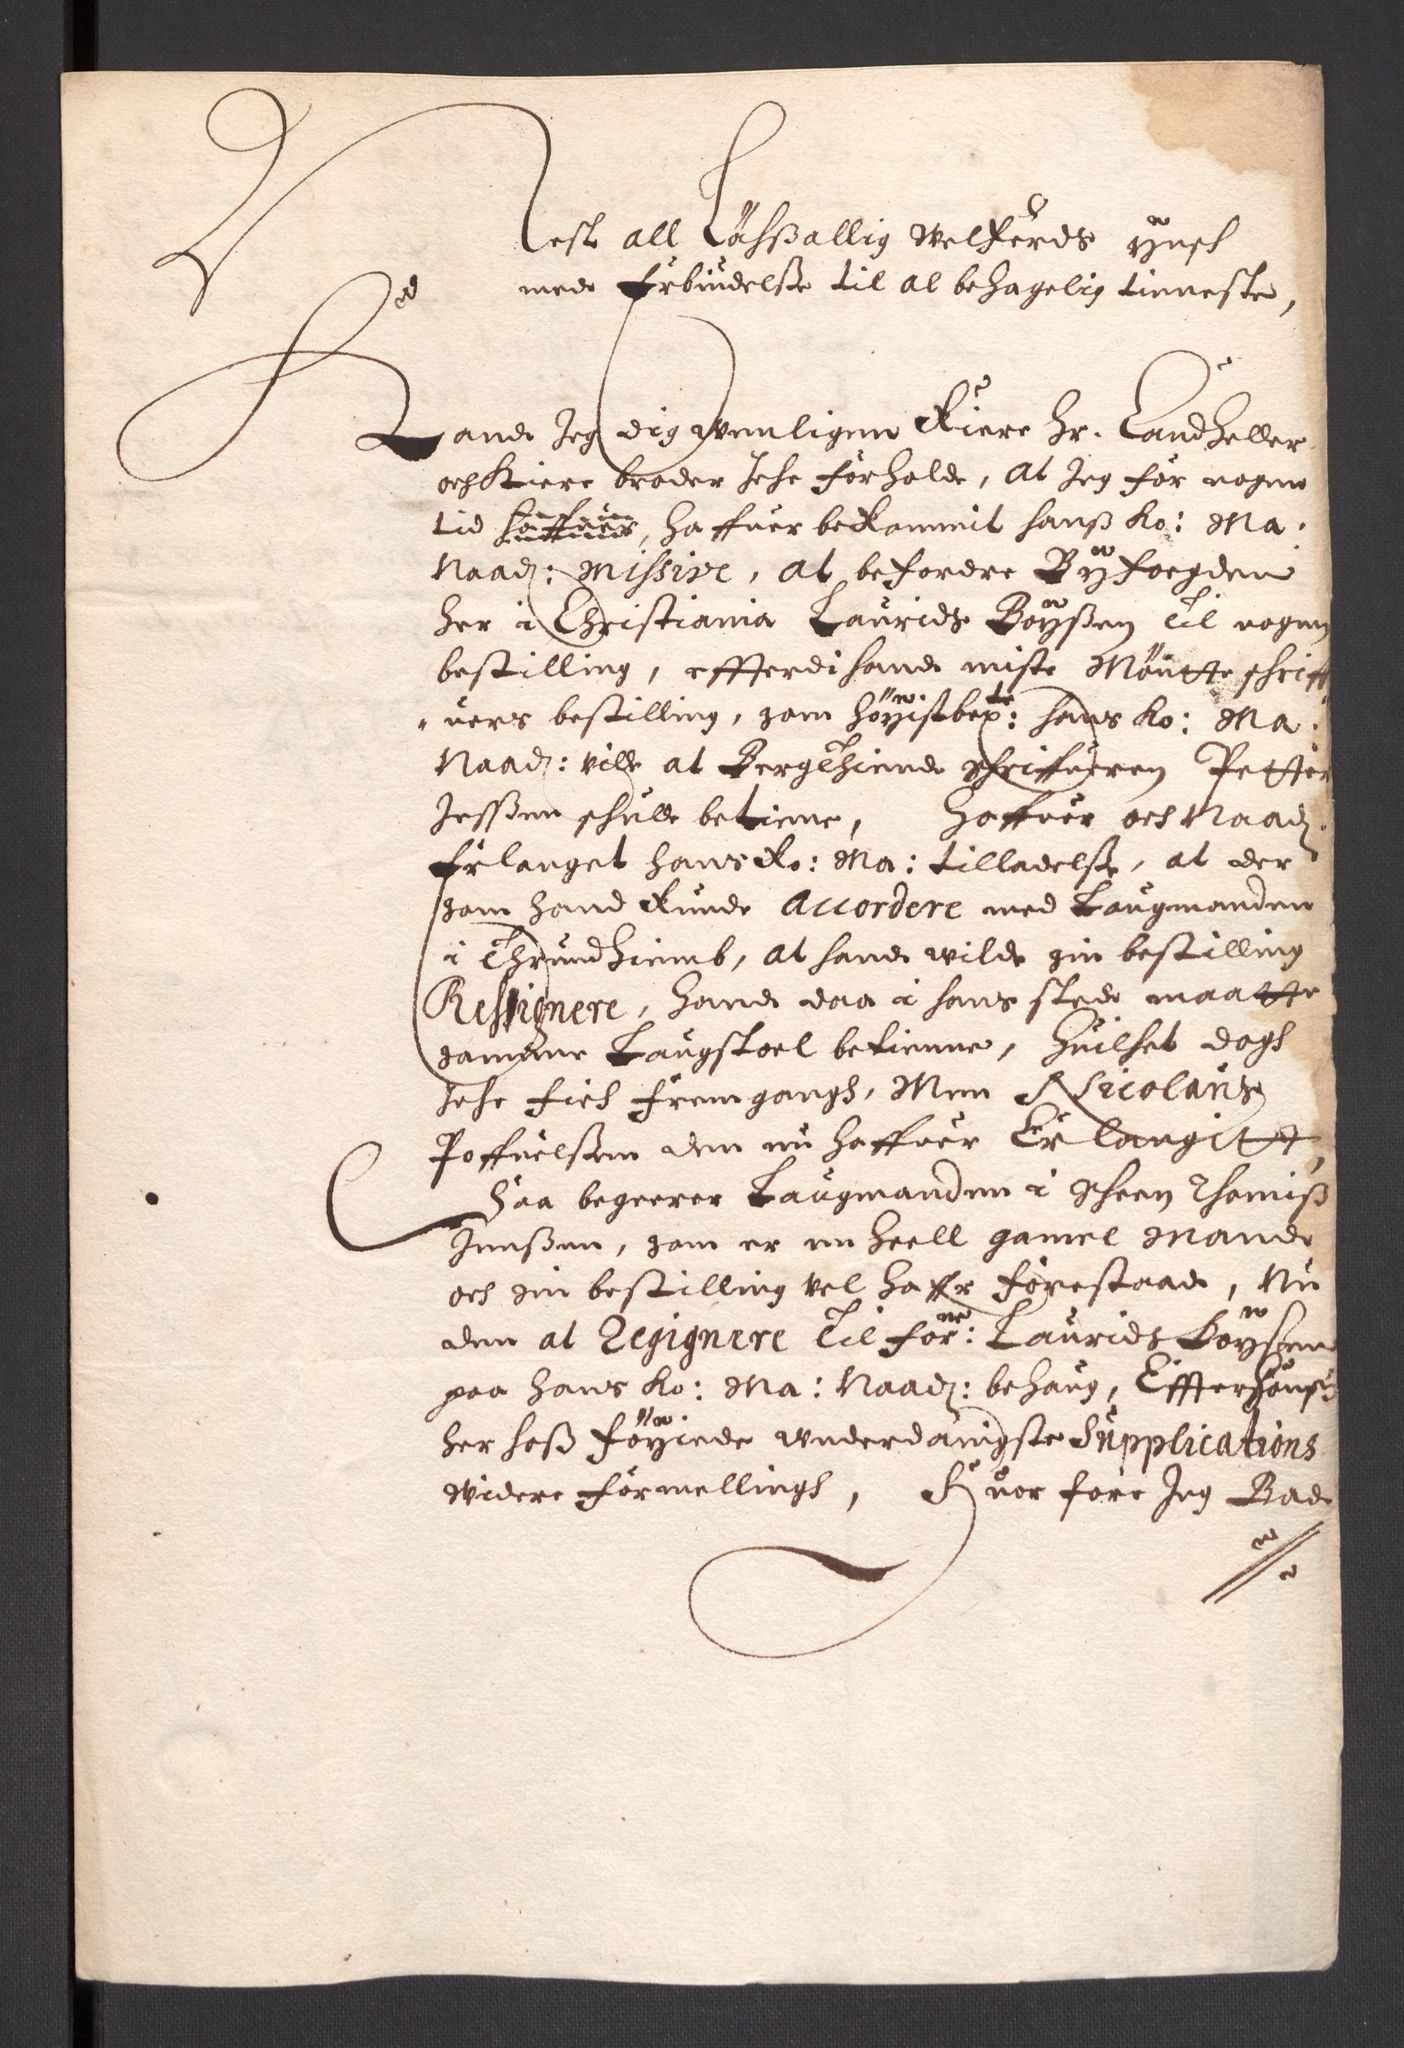 Nest all Løchsallig welferds ynsch
med forbindelse til al behagelig tienneste,
Kand Jeg dig wenligen Kiere Hr. Candtzeller
och Kiere broder Iche forholde, At Jeg for nogen
tid haffuer, haffuer bekommit hanß Ko: Ma.
Naad: Missive, At befordre Byfoegden
her i Christiania Laurids Böyßen til nogen
bestilling, effterdi hand miste Möntte schriff
uers bestilling, som höyistbete: hans Ko: Ma:
Naad: ville at Bergthiende schriffueren Petter
Jenßen schulle betiene, Haffuer och Naad.
Erlanget hans Ko: Ma: tilladelße, at der
som hand kunde Accordere med Laugmanden
i Thrundhiemb, At hand wilde sin bestilling
Ressignere, hand daa i hans sted maatte
samme Laugstoel betienne, Huilket dogh
iche fich fremgangh, Men Nicolaus
Poffuelsen den nu haffuer Erlangitt,
Saa begeerer Laugmanden i Scheen Thomiß
Jenßen, som er en heell gamel Mand
och sin bestilling vel haffr forestaad, Nu
den at Resignere til forne: Laurids Böyßen
paa Hans Ko: Ma: Naad: behaug, Effterhanß
her hoß föyiede underdanigste Supplications
widere formellingh, Huor fore Jeg Bad